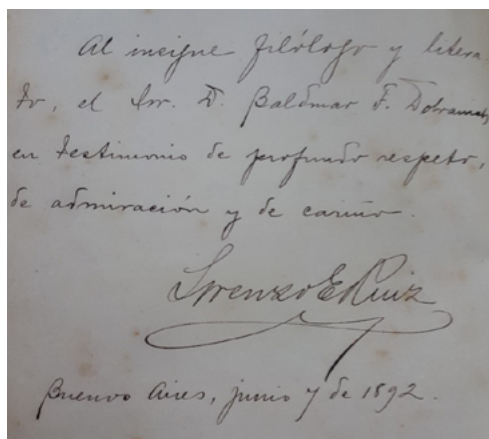 Al insigne filólogo y litera-
to, el Sor. D. Baldmar F. Dobranich,
en testimonio de profundo respeto,
de admiración y de cariño.
Lorenzo E Ruiz
Buenos Aires, junio 7 de 1892.